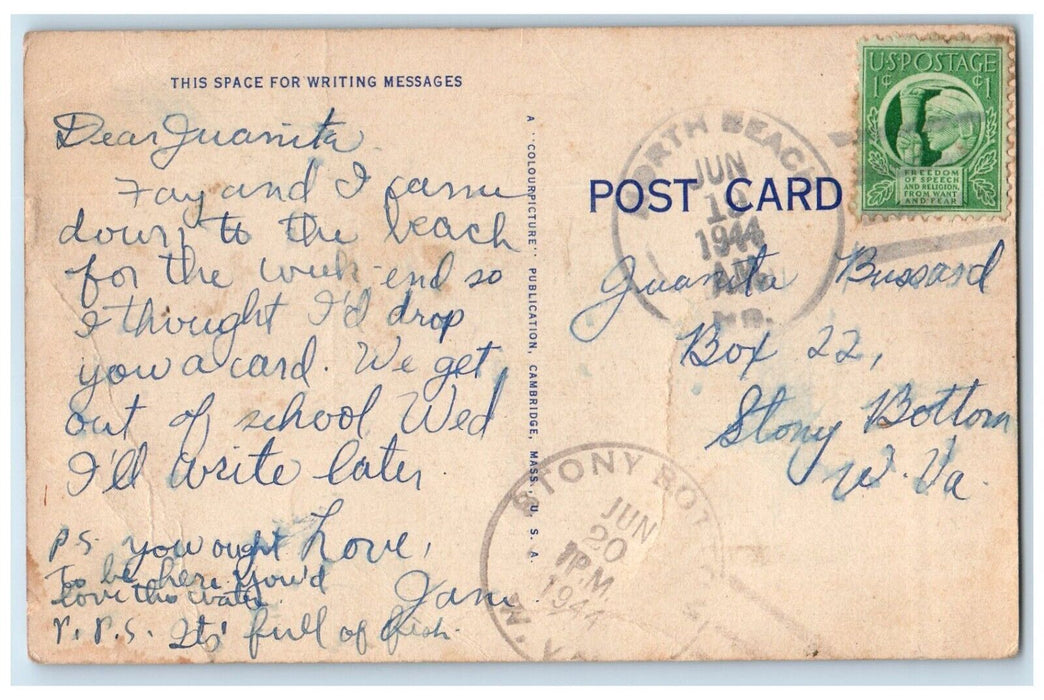 THIS SPACE FOR WRITING MESSAGES
Dear Juanita
Fay and I came
down to the beach
for the week-end so
I thought I'd drop
you a card. We get
out of school Wed
I'll write later
Love,
Jane
P.S. you ought
To be here. You'd
love the water.
P. P.S. Its' full of fish.
A "COLOURPICTURE" PUBLICATION, CAMBRIDGE, MASS., U. S. A.
POST CARD
U.S. POSTAGE
1¢ ¢1
FREEDOM
OF SPEECH
AND RELIGION,
FROM WANT
AND FEAR
NORTH BEACH
JUN
1944
MD.
Juanita Bussard
Box 22,
Stony Bottom
W. Va.
STONY BOT
JUN
20
P.M.
1944
W. VA